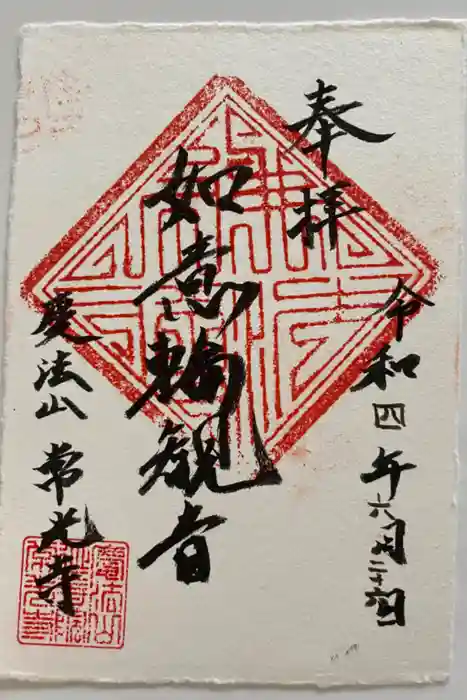 奉拝
令和四年六月二十六日
如意輪観音
慶法山 常光寺